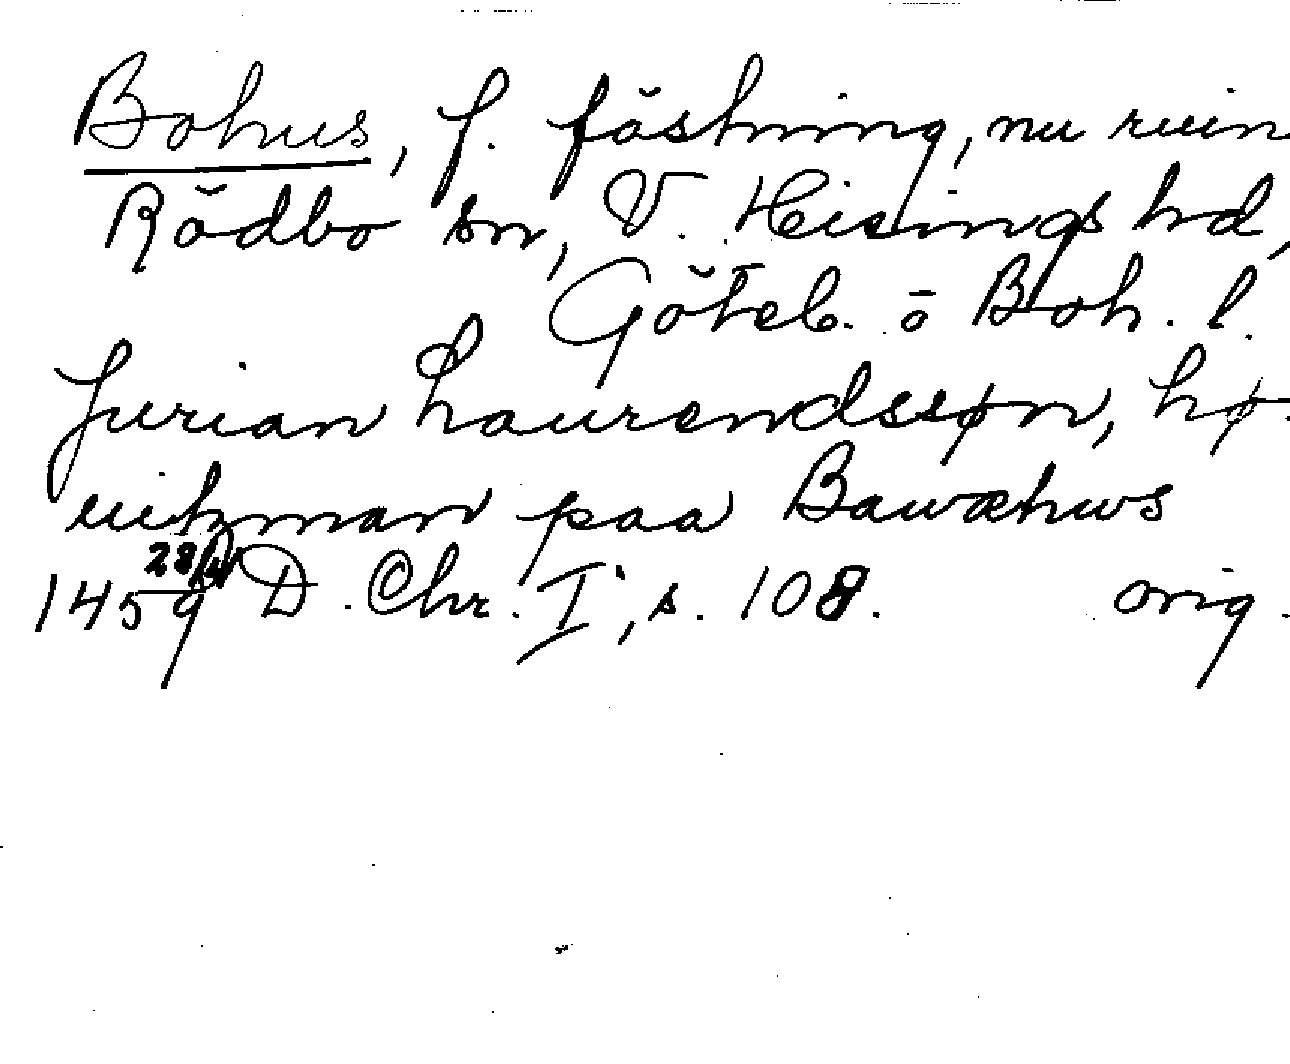 Bohus, f. fästning, nu ruin
Rödbo sn, V. Hisings hd,
Göteb. o Boh. l.
Jurian Laurendssøn, hø-
uitzman paa Bawæhws
1459 28/4 D. Chr. I, s. 108. orig.